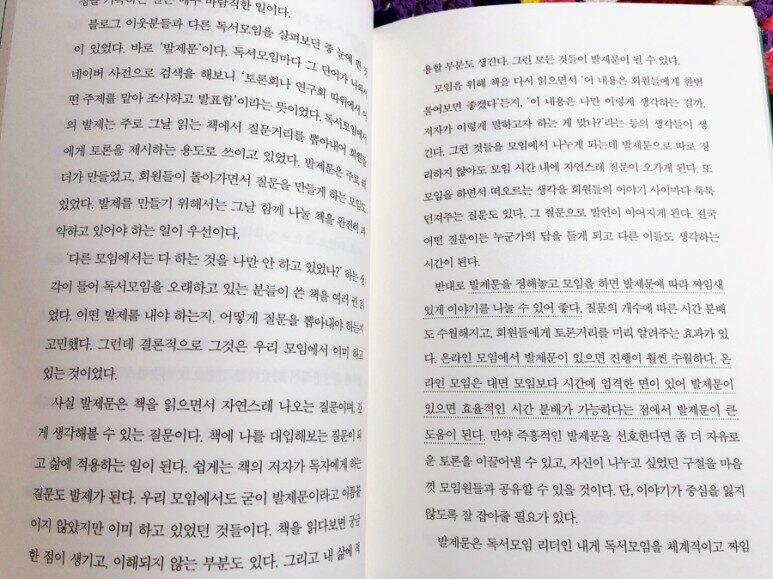 경을 기획하는 일은 매우 바람직한 일이다.
블로그 이웃분들과 다른 독서모임을 살펴보던 중 눈에 띈 것
이 있었다. 바로 '발제문'이다. 독서모임마다 그 단어가 나와서
네이버 사전으로 검색을 해보니 '토론회나 연구회 따위에서 어
떤 주제를 맡아 조사하고 발표함'이라는 뜻이었다. 독서모임에서
의 발제는 주로 그날 읽는 책에서 질문거리를 뽑아내어 회원들
에게 토론을 제시하는 용도로 쓰이고 있었다. 발제문은 주로 리
더가 만들었고, 회원들이 돌아가면서 질문을 만들게 하는 모임도
있었다. 발제를 만들기 위해서는 그날 함께 나눌 책을 완전히 파
악하고 있어야 하는 일이 우선이다.
'다른 모임에서는 다 하는 것을 나만 안 하고 있었나?' 하는 생
각이 들어 독서모임을 오래하고 있는 분들이 쓴 책을 여러 권 읽
었다. 어떤 발제를 내야 하는지, 어떻게 질문을 뽑아내야 하는지
고민했다. 그런데 결론적으로 그것은 우리 모임에서 이미 하고
있는 것이었다.
사실 발제문은 책을 읽으면서 자연스레 나오는 질문이며, 깊
게 생각해볼 수 있는 질문이다. 책에 나를 대입해보는 질문이 되
고 삶에 적용하는 일이 된다. 쉽게는 책의 저자가 독자에게 하는
질문도 발제가 된다. 우리 모임에서도 굳이 발제문이라고 이름붙
이지 않았지만 이미 하고 있었던 것들이다. 책을 읽다보면 궁금
한 점이 생기고, 이해되지 않는 부분도 있다. 그리고 내 삶에 적
용할 부분도 생긴다. 그런 모든 것들이 발제문이 될 수 있다.
모임을 위해 책을 다시 읽으면서 '이 내용은 회원들에게 한번
물어보면 좋겠다'든지, '이 내용은 나만 이렇게 생각하는 걸까.
저자가 이렇게 말하고자 하는 게 맞나?'라는 등의 생각들이 생
긴다. 그런 것들을 모임에서 나누게 되는데 발제문으로 따로 정
리하지 않아도 모임 시간 내에 자연스레 질문이 오가게 된다. 또
모임을 하면서 떠오르는 생각을 회원들의 이야기 사이마다 툭툭
던져주는 질문도 있다. 그 질문으로 발언이 이어지게 된다. 결국
어떤 질문이든 누군가의 답을 듣게 되고 다른 이들도 생각하는
시간이 된다.
반대로 발제문을 정해놓고 모임을 하면 발제문에 따라 짜임새
있게 이야기를 나눌 수 있어 좋다. 질문의 개수에 따른 시간 분배
도 수월해지고, 회원들에게 토론거리를 미리 알려주는 효과가 있
다. 온라인 모임에서 발제문이 있으면 진행이 훨씬 수월하다. 온
라인 모임은 대면 모임보다 시간에 엄격한 면이 있어 발제문이
있으면 효율적인 시간 분배가 가능하다는 점에서 발제문이 큰
도움이 된다. 만약 즉흥적인 발제문을 선호한다면 좀 더 자유로
운 토론을 이끌어낼 수 있고, 자신이 나누고 싶었던 구절을 마음
껏 모임원들과 공유할 수 있을 것이다. 단, 이야기가 중심을 잃지
않도록 잘 잡아줄 필요가 있다.
발제문은 독서모임 리더인 내게 독서모임을 체계적이고 짜임